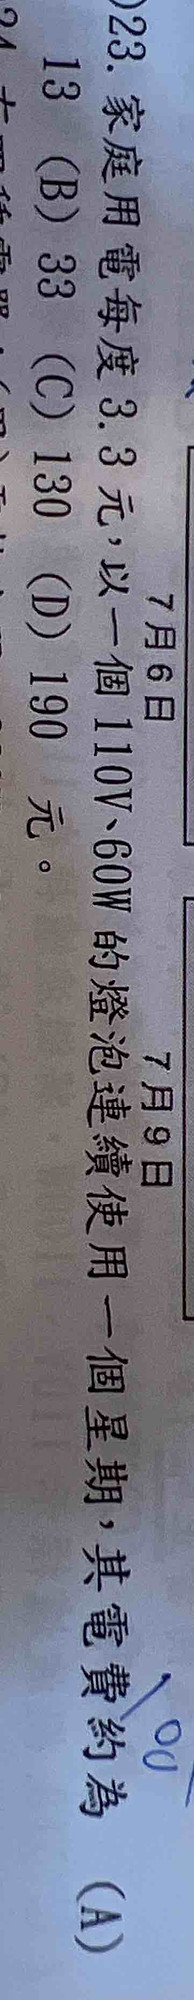 7月6日 7月9日
)23. 家庭用電每度 3.3 元，以一個 110V、60W 的燈泡連續使用一個星期，其電費約為 (A)
13 (B) 33 (C) 130 (D) 190 元。